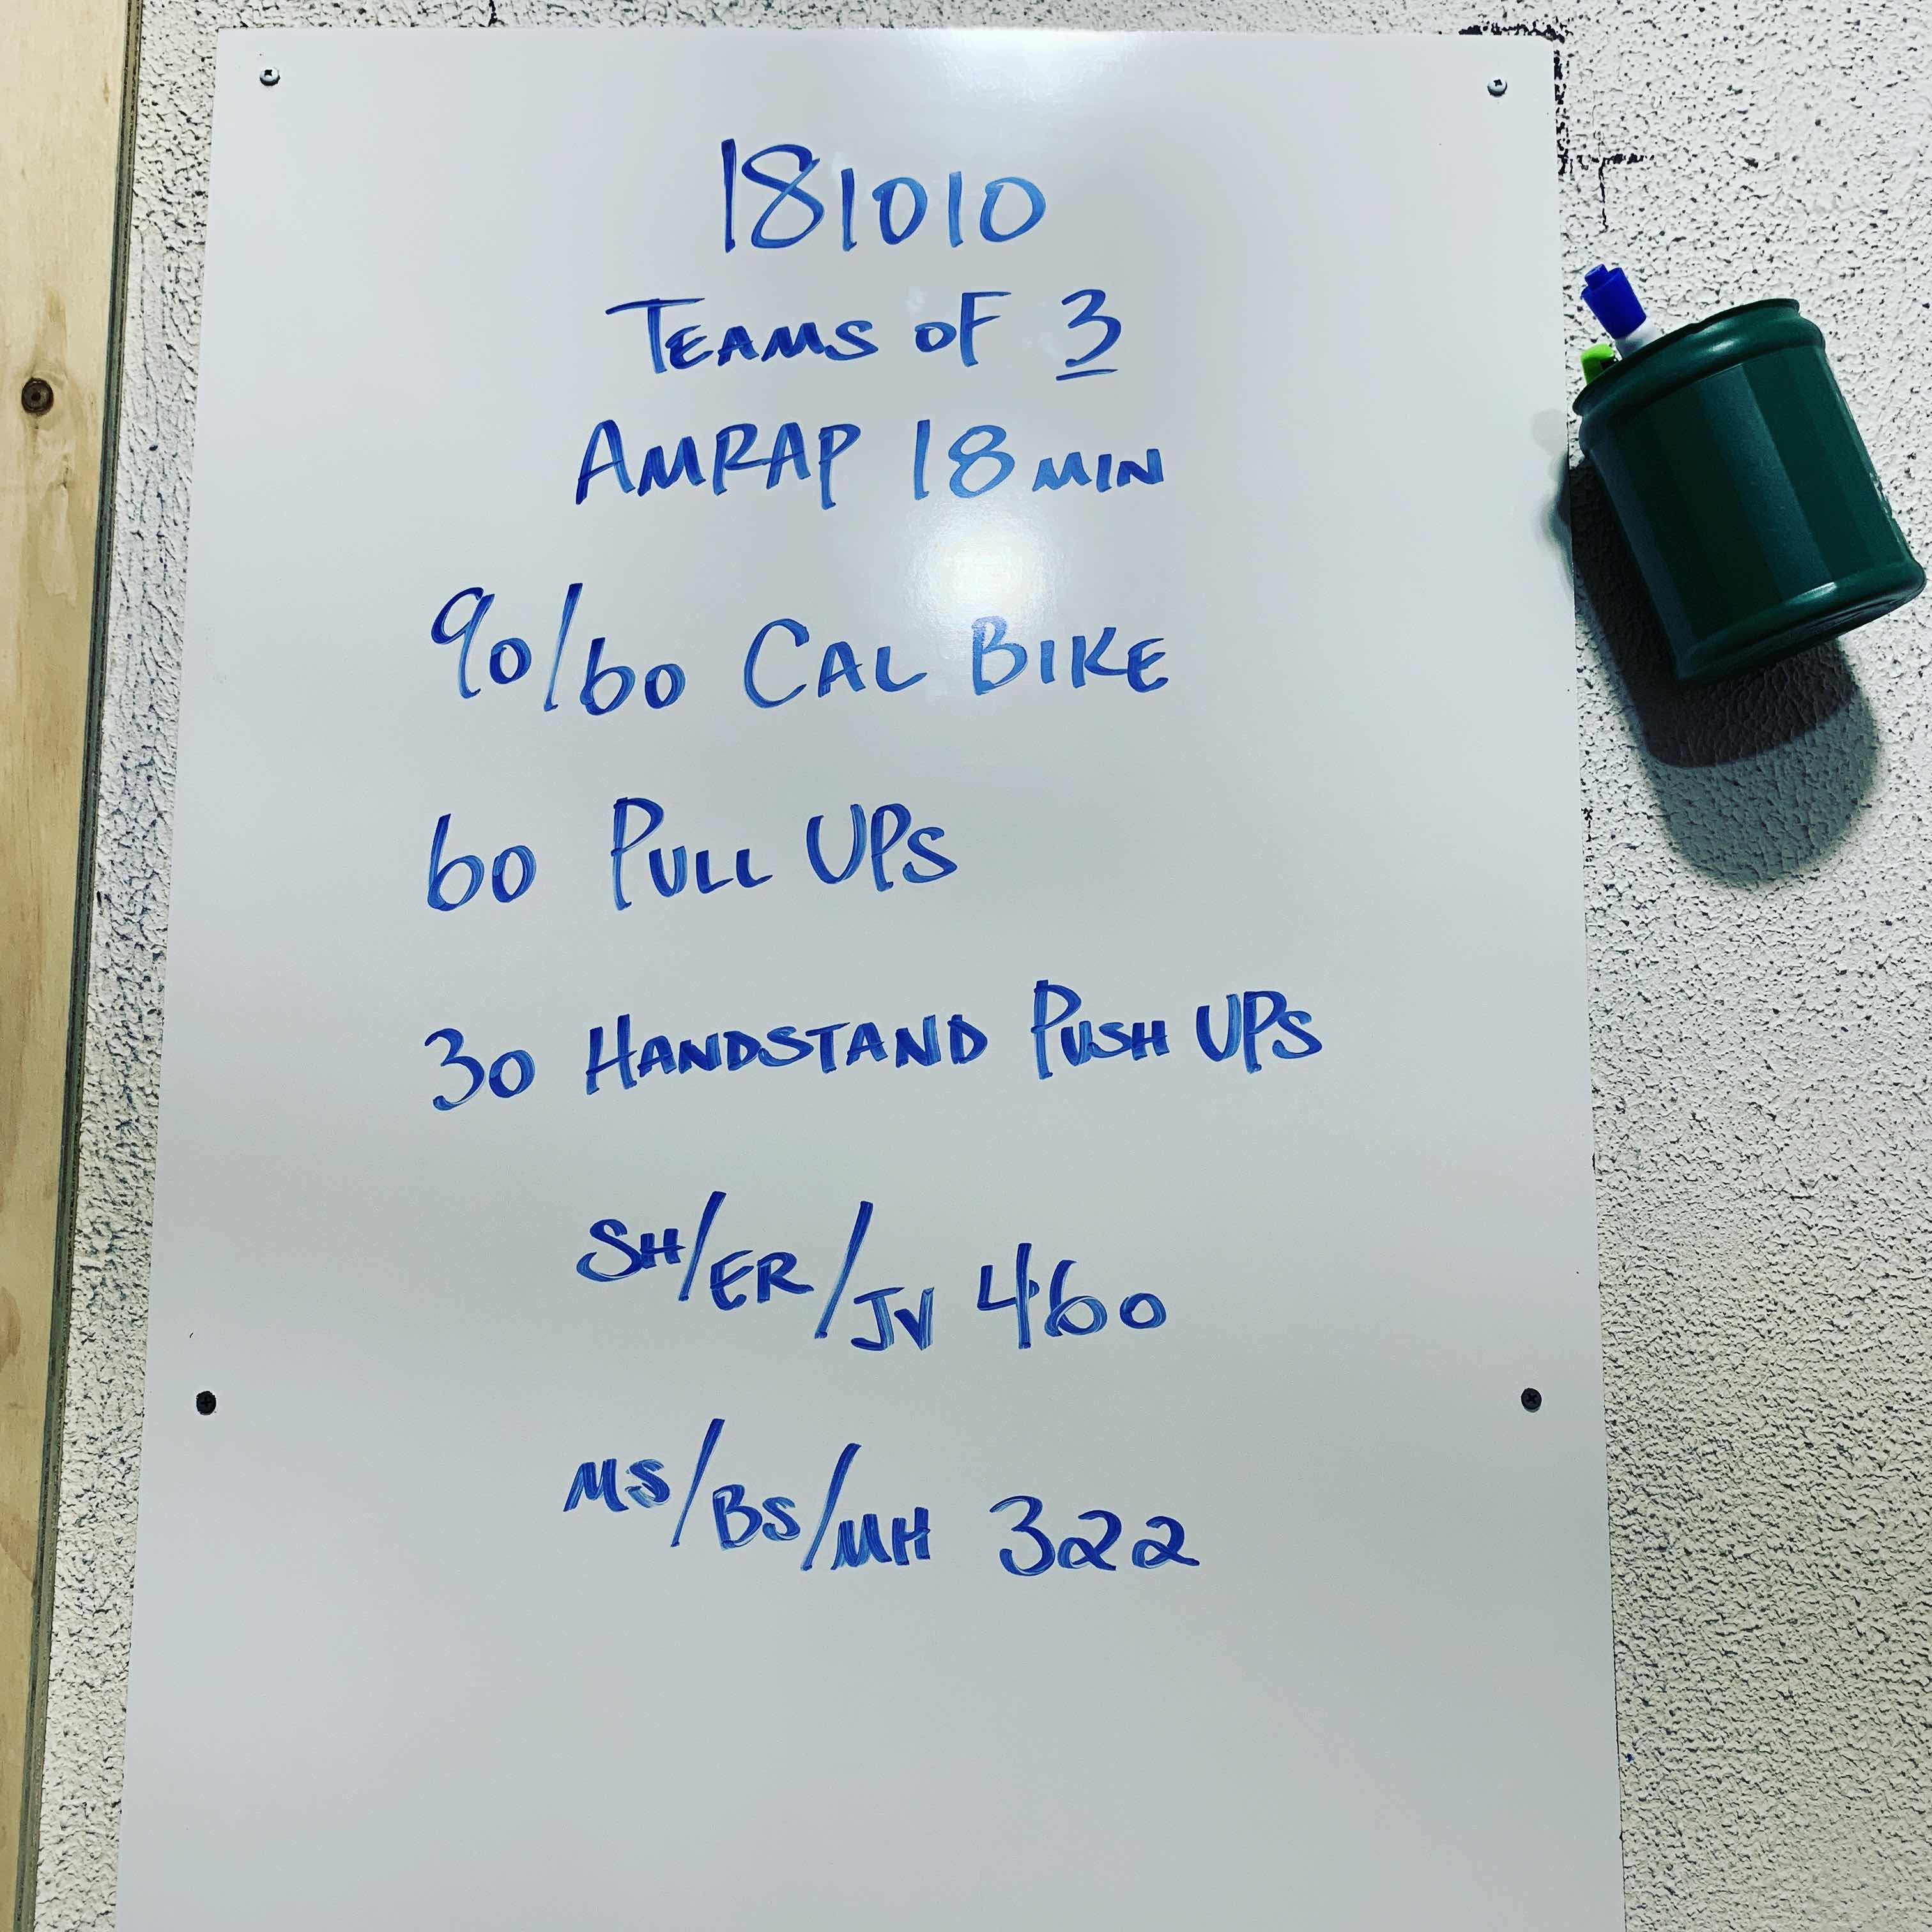 181010
TEAMS OF 3
AMRAP 18 MIN
90/60 CAL BIKE
60 PULL UPS
30 HANDSTAND PUSH UPS
SH/ER/JV 460
MS/BS/MH 322